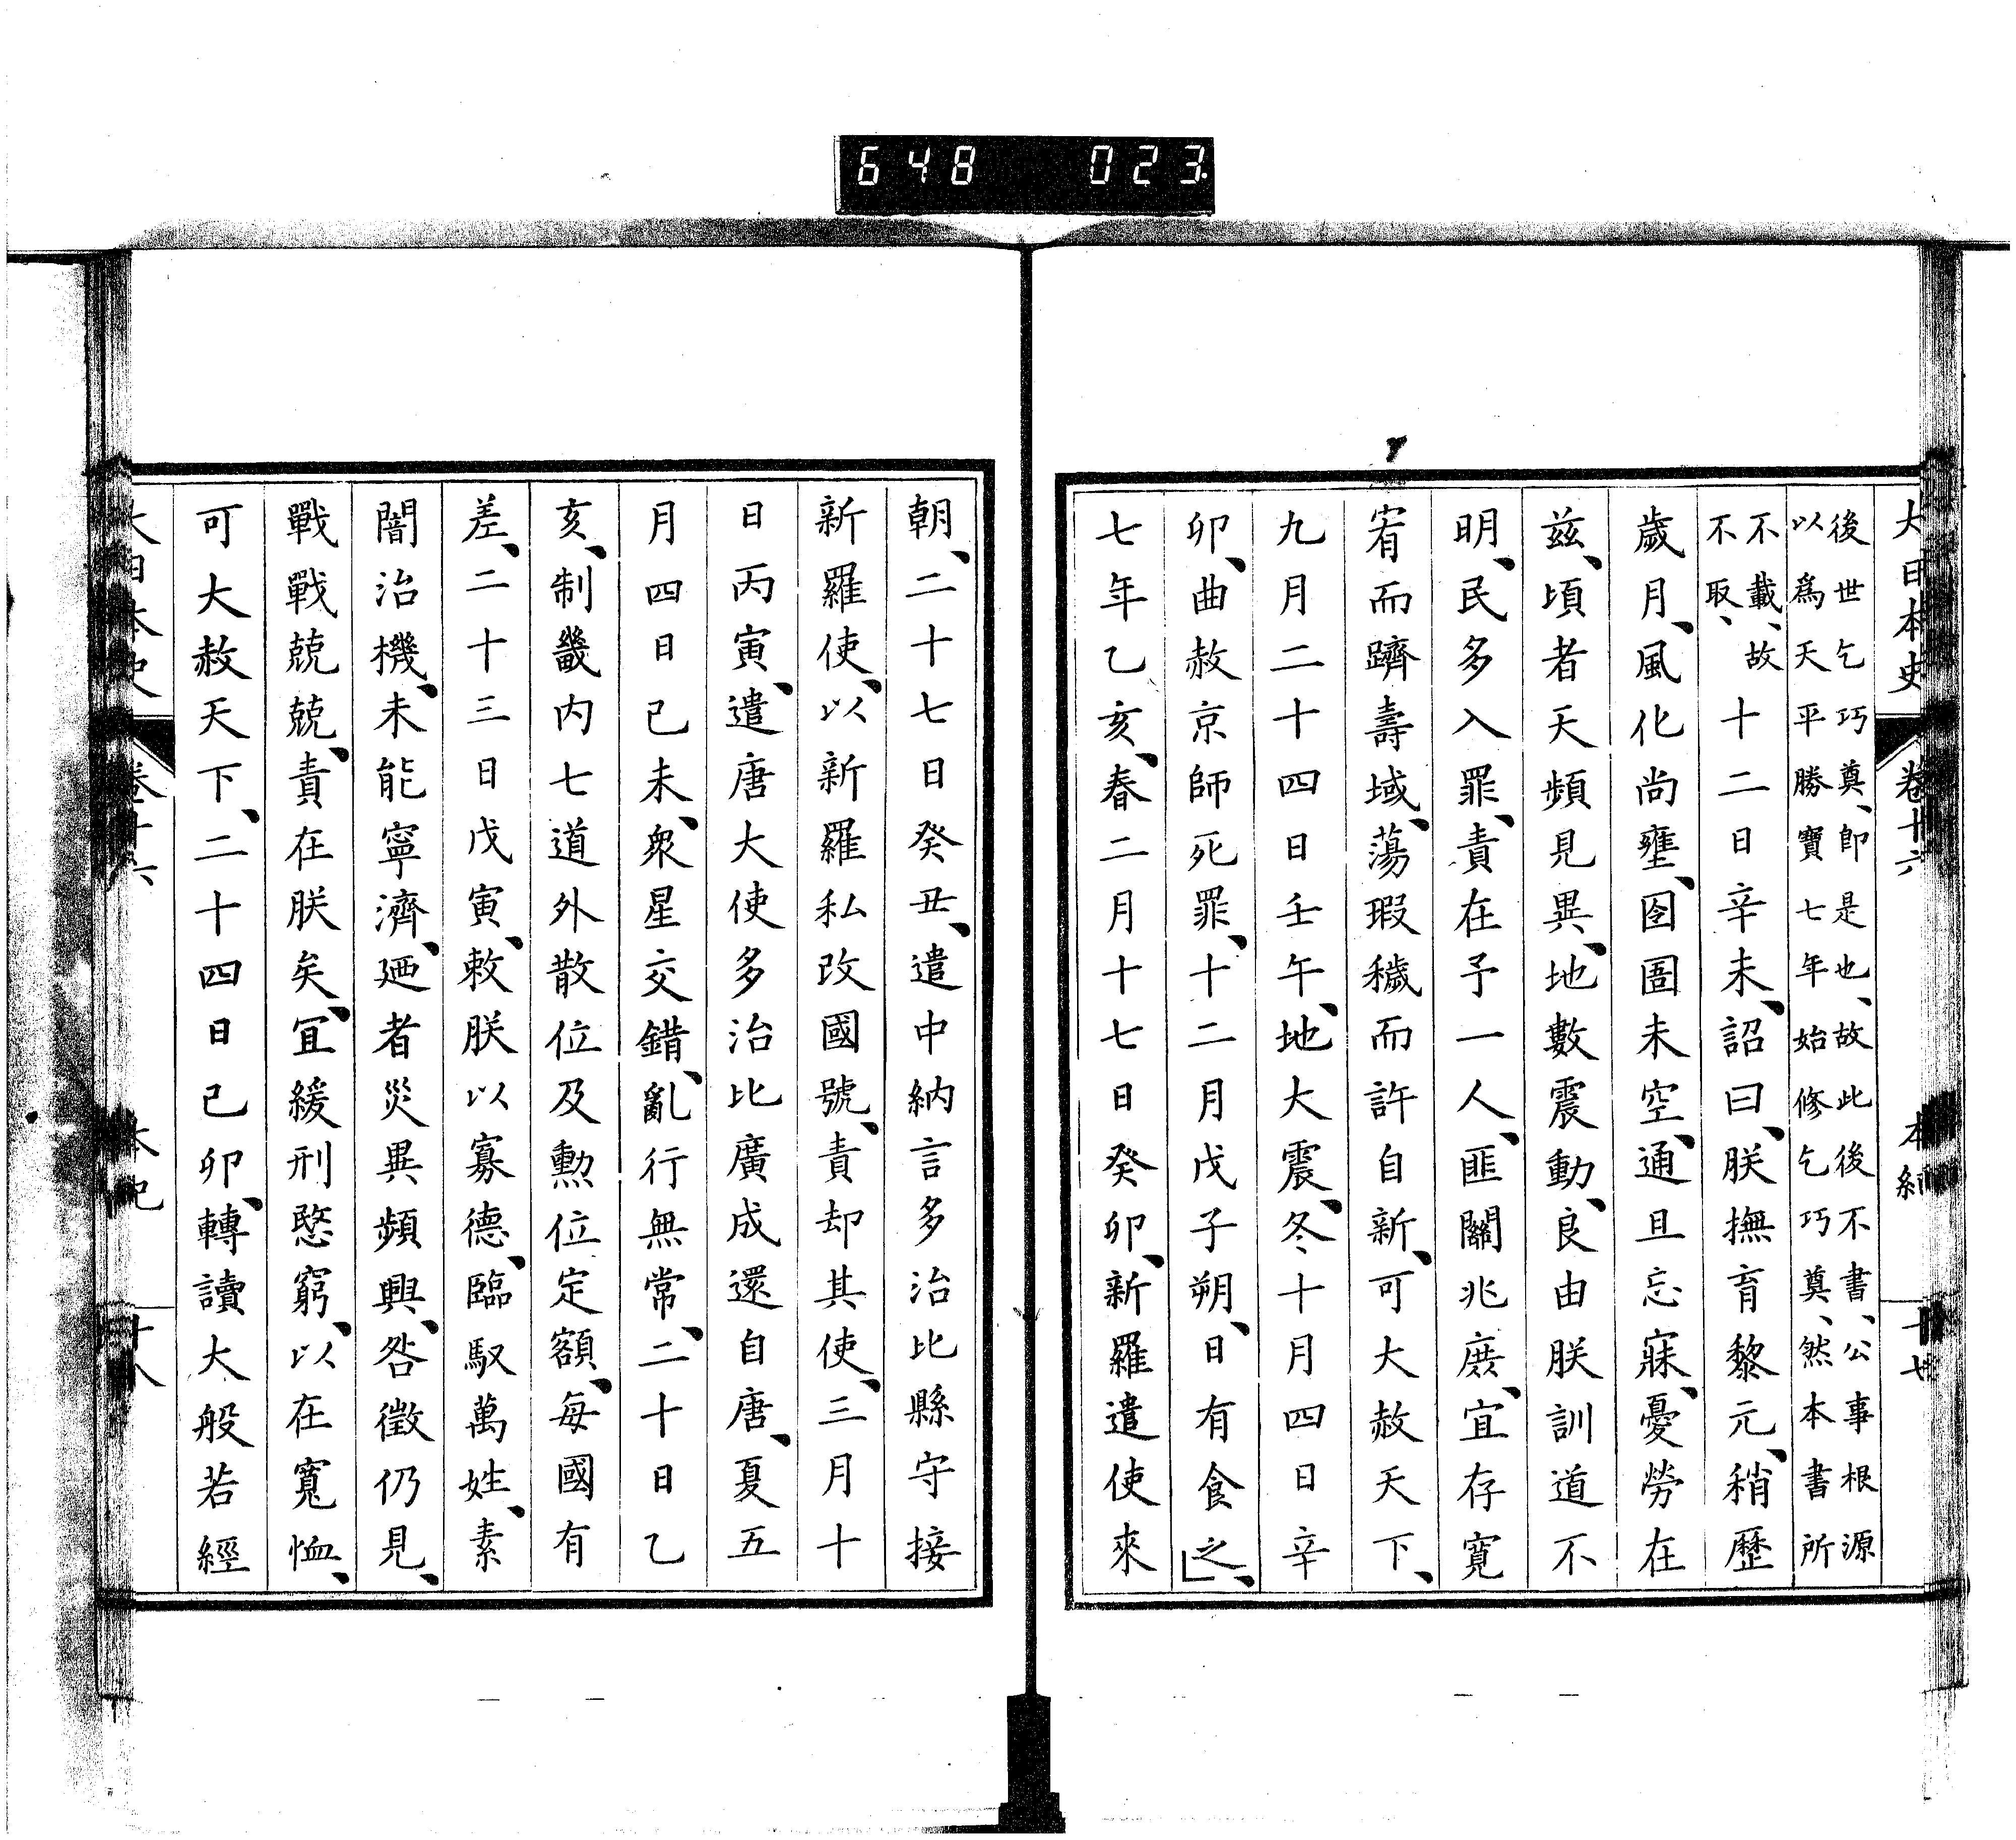 648 023
大日本史 卷十六 本紀 十七
後世乞巧奠、卽是也、故此後不書、公事根源
以爲天平勝寶七年始修乞巧奠、然本書所
不載、故
不取、
十二日辛未、詔曰、朕撫育黎元、稍歷
歲月、風化尚壅、囹圄未空、通旦忘寐、憂勞在
茲、頃者天頻見異、地數震動、良由朕訓道不
明、民多入罪、責在予一人、匪關兆庶、宜存寬
宥而躋壽域、蕩瑕穢而許自新、可大赦天下、
九月二十四日壬午、地大震、冬十月四日辛
卯、曲赦京師死罪、十二月戊子朔、日有食之、
七年乙亥、春二月十七日癸卯、新羅遣使來
朝、二十七日癸丑、遣中納言多治比縣守接
新羅使、以新羅私改國號、責却其使、三月十
日丙寅、遣唐大使多治比廣成還自唐、夏五
月四日己未、衆星交錯、亂行無常、二十日乙
亥、制畿内七道外散位及勲位定額、每國有
差、二十三日戊寅、敕朕以寡德、臨馭萬姓、素
闇治機、未能寧濟、廼者災異頻興、咎徵仍見、
戰戰兢兢、責在朕矣、宜緩刑愍窮、以在寬恤、
可大赦天下、二十四日己卯、轉讀大般若經
大日本史 卷十六 本紀 十八